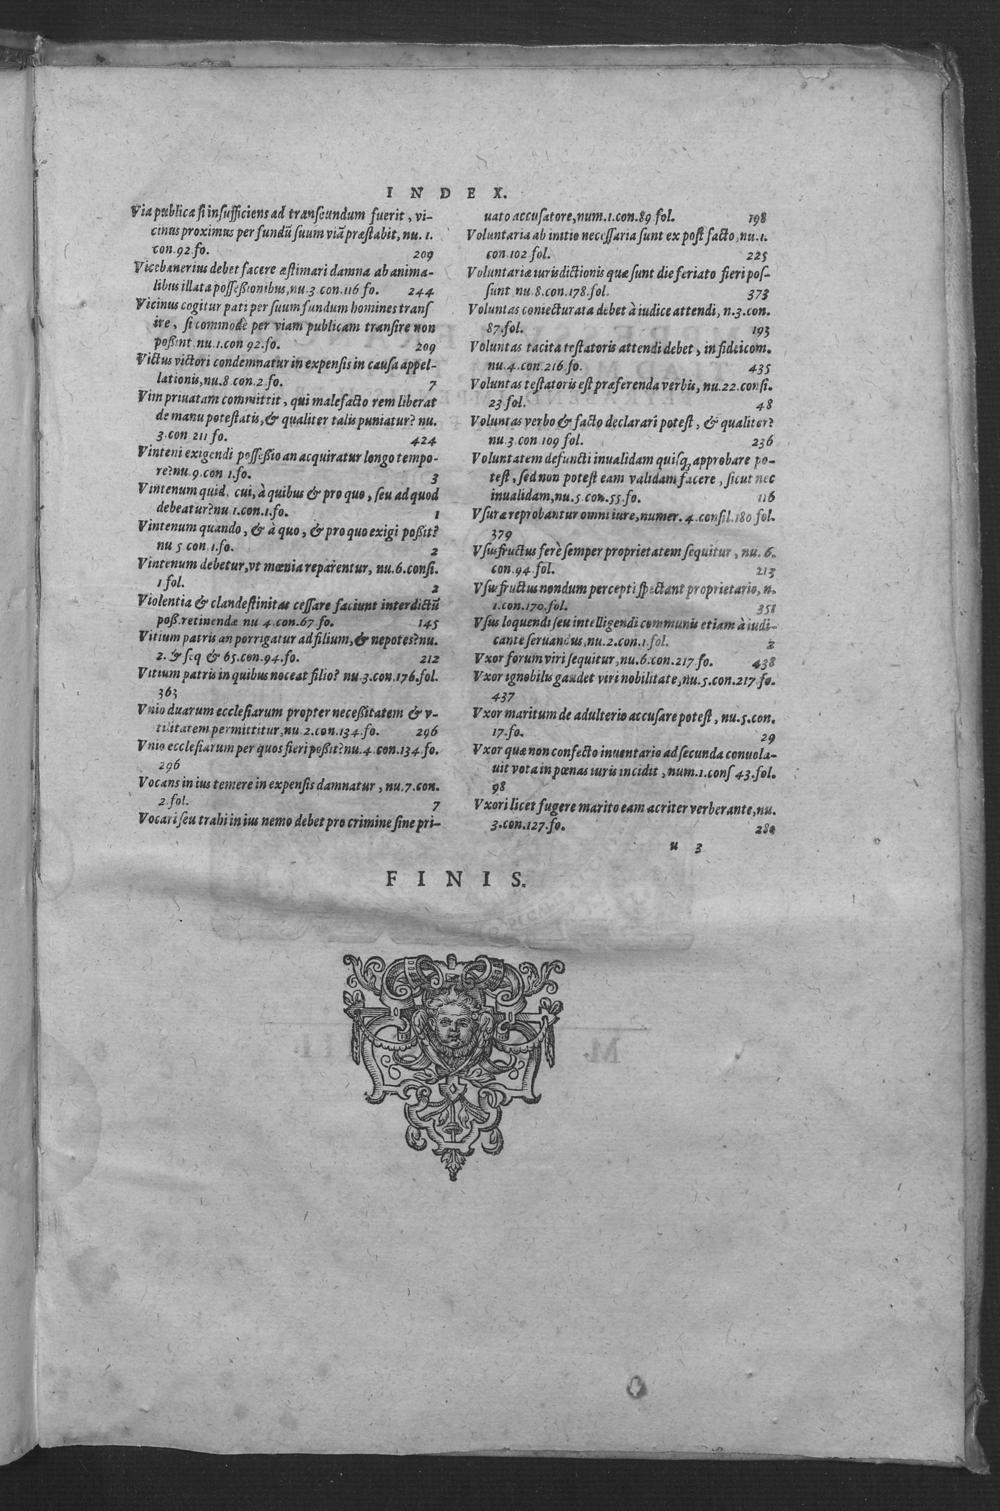 INDEX.
Via publica si insufficiens ad transeundum fuerit, vi-
cinus proximus per fundũ suum viã præstabit, nu. 1.
con.92.fo. 209
Vicebanerius debet facere æstimari damna ab anima-
libus illata possessionibus, nu.3.con.116 fo. 244
Vicinus cogitur pati per suum fundum homines trans
ire, si commodè per viam publicam transire non
possint. nu.1.con 92.fo. 209
Victus victori condemnatur in expensis in causa appel-
lationis, nu.8.con.2.fo. 7
Vim priuatam committit, qui malefacto rem liberat
de manu potestatis, & qualiter talis puniatur? nu.
3.con 211 fo. 424
Vinteni exigendi possessio an acquiratur longo tempo-
re? nu.9.con 1.fo. 3
Vintenum quid, cui, à quibus & pro quo, seu ad quod
debeatur? nu 1.con.1.fo. 1
Vintenum quando, & à quo, & pro quo exigi possit?
nu 5 con.1.fo. 2
Vintenum debetur, vt mœnia reparentur, nu.6.consi.
1 fol. 2
Violentia & clandestinitas cessare faciunt interdictũ
poss.retinendæ nu 4.con.67.fo. 145
Vitium patris an porrigatur ad filium, & nepotes? nu.
2. & seq & 65.con.94.fo. 212
Vitium patris in quibus noceat filio? nu.3.con.176.fol.
363
Vnio duarum ecclesiarum propter necessitatem & v-
tilitatem permittitur, nu.2.con.134.fo. 296
Vnio ecclesiarum per quos fieri possit? nu.4.con.134.fo.
296
Vocans in ius temere in expensis damnatur, nu.7.con.
2.fol. 7
Vocari seu trahi in ius nemo debet pro crimine sine pri-
uato accusatore, num.1.con.89 fol. 198
Voluntaria ab initio necessaria sunt ex post facto, nu.1.
con 102 fol. 225
Voluntariæ iurisdictionis quæ sunt die feriato fieri pos-
sunt nu.8.con.178.fol. 373
Voluntas coniecturata debet à iudice attendi, n.3.con.
87.fol. 193
Voluntas tacita testatoris attendi debet, in fideicom.
nu.4.con.216 fo. 435
Voluntas testatoris est præferenda verbis, nu.22.consi.
23 fol. 48
Voluntas verbo & facto declarari potest, & qualiter?
nu.3 con 109 fol. 236
Voluntatem defuncti inualidam quisq; approbare po-
test, sed non potest eam validam facere, sicut nec
inualidam, nu.5.con.55.fo. 116
Vsuræ reprobantur omni iure, numer. 4.consil.180 fol.
379
Vsusfructus ferè semper proprietatem sequitur, nu. 6.
con.94 fol. 213
Vsusfructus nondum percepti spectant proprietario, n.
1.con.170.fol. 351
Vsus loquendi seu intelligendi communis etiam à iudi-
cante seruandus, nu.2.con.1.fol. 2
Vxor forum viri sequitur, nu.6.con.217 fo. 438
Vxor ignobilis gaudet viri nobilitate, nu.5.con.217.fo.
437
Vxor maritum de adulterio accusare potest, nu.5.con.
17.fo. 29
Vxor quæ non confecto inuentario ad secunda conuola-
uit vota in pœnas iuris incidit, num.1.cons 43.fol.
98
Vxori licet fugere marito eam acriter verberante, nu.
3.con.127.fo.
u 3
FINIS.